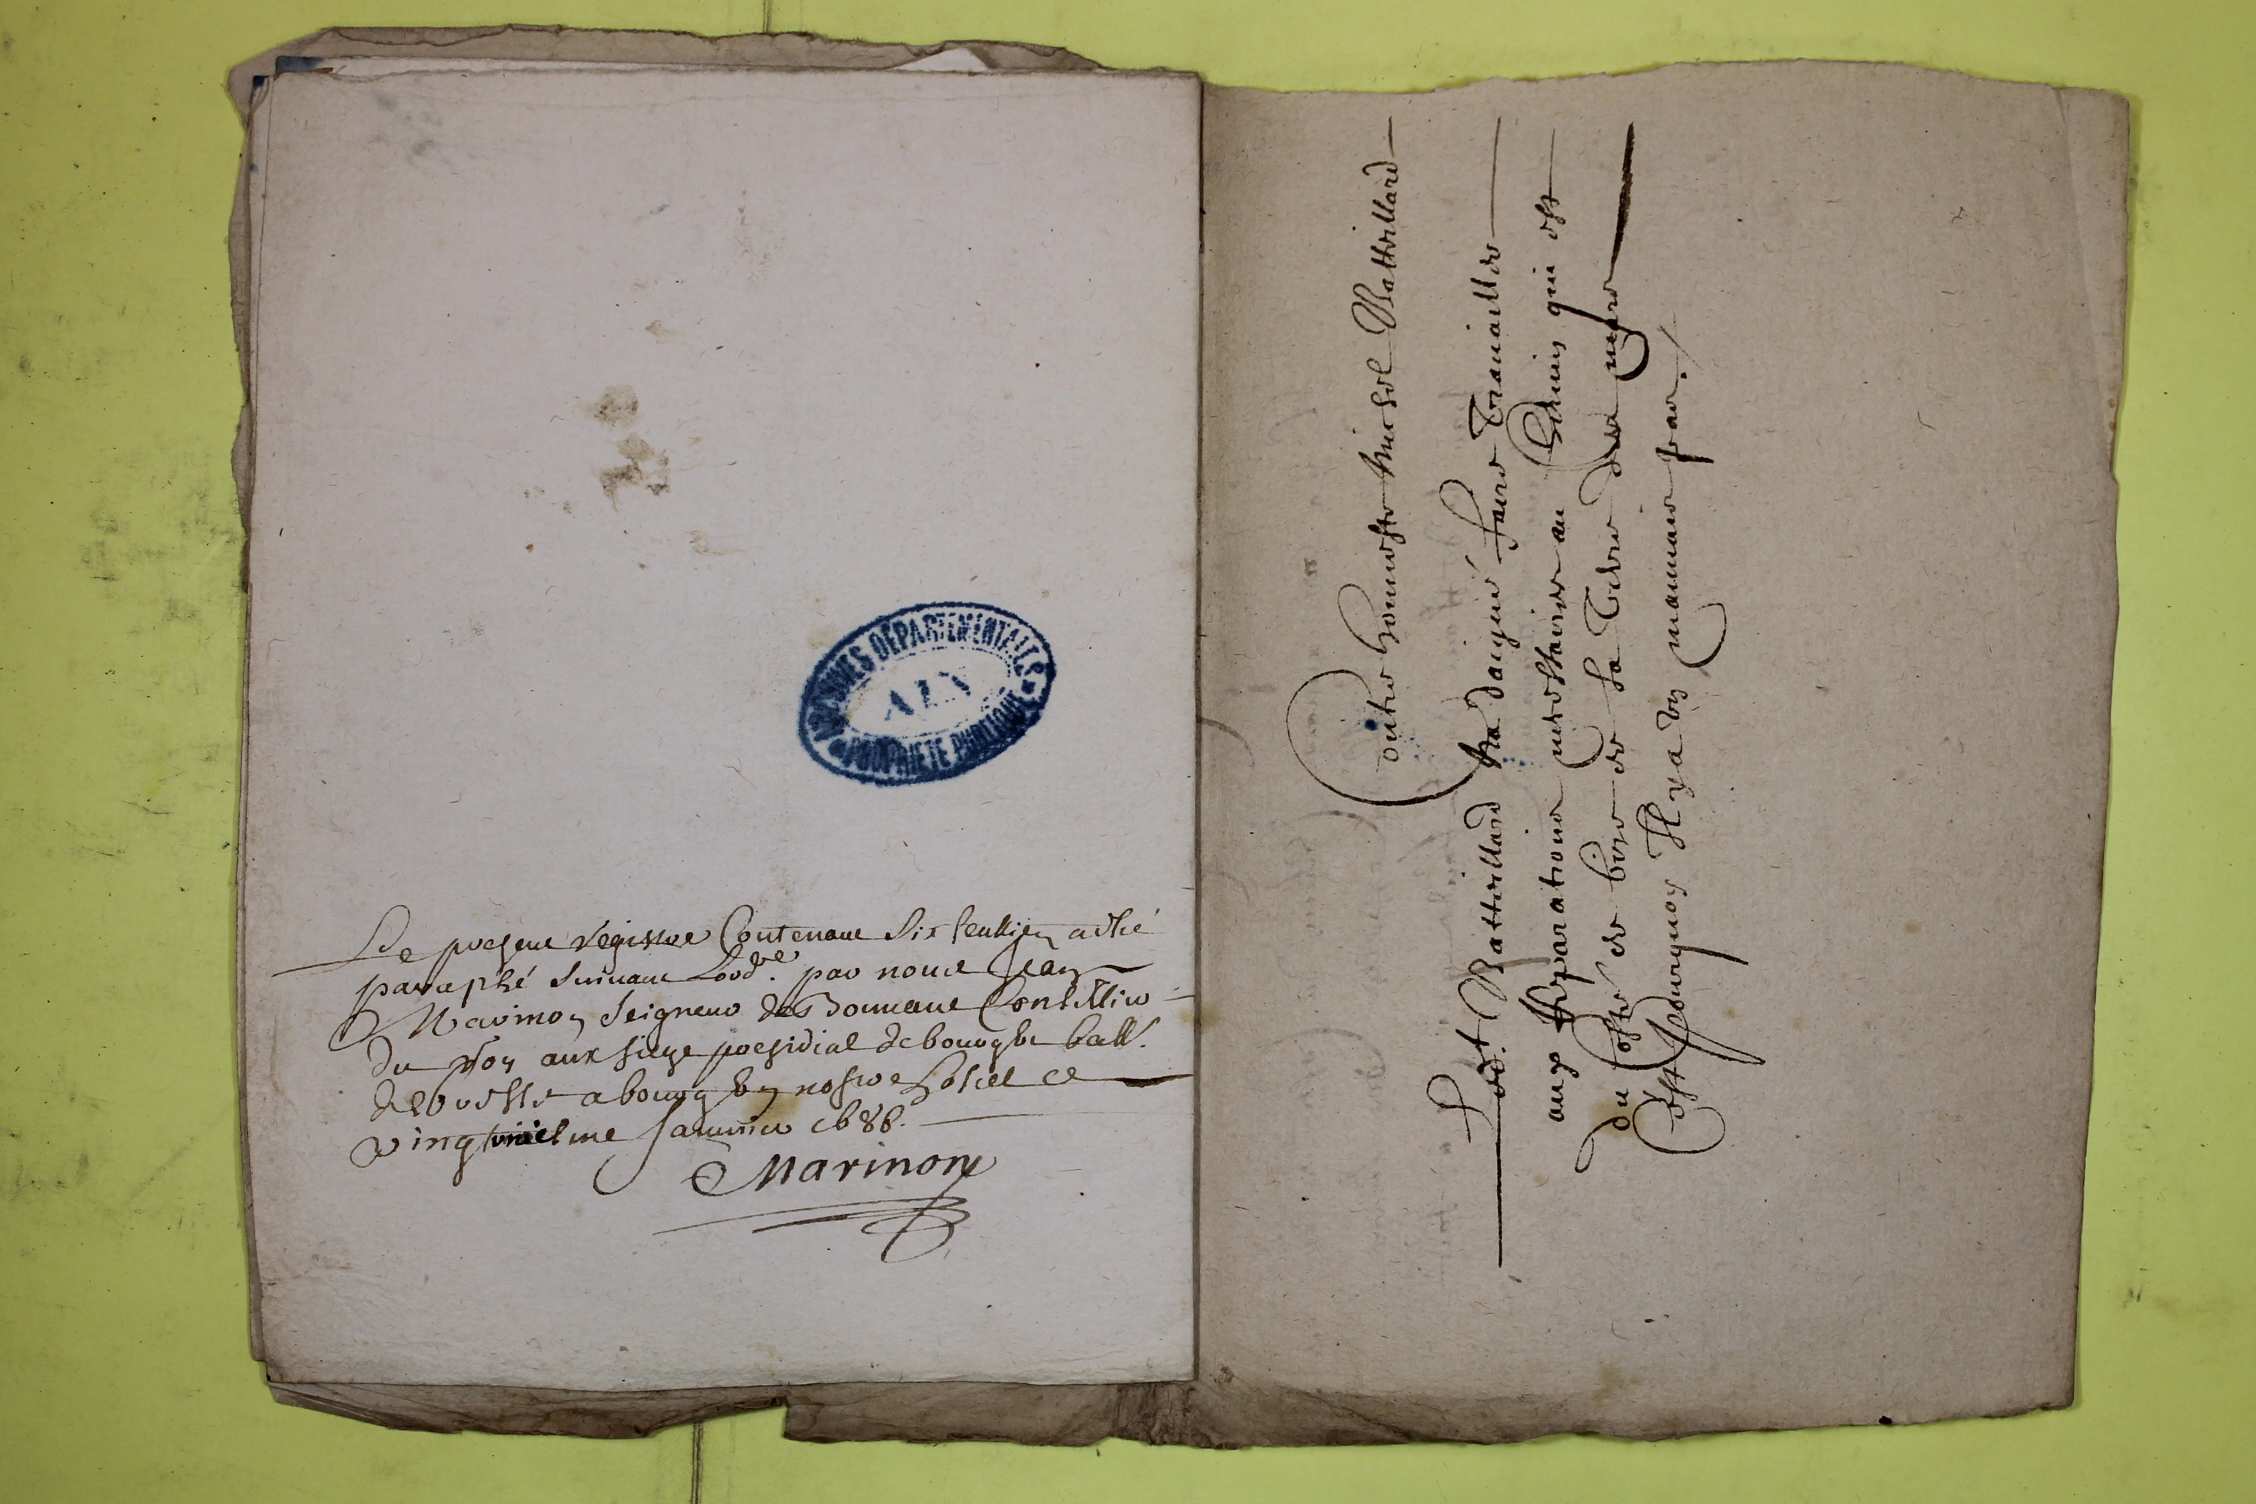 ARCHIVES DÉPARTEMENTALES
AIN
PROPRIÉTÉ PUBLIQUE
Le present registre Contenant six feullies a esté
paraphé suivant Lord.ce par nous Jean
Marinon Seigneur des Conseillier
du Roy aux siege presidial de bourg
de bresse a bourg En nostre hostel ce
vingt Janvier 1688.
Marinon
Contre honneste Michel Battillard
Led.t Battillard na daigné faire travailler
aux Reparations necessaires au Chemin qui est
du Costé de bize de la Terre
Cest pourquoy Il ya